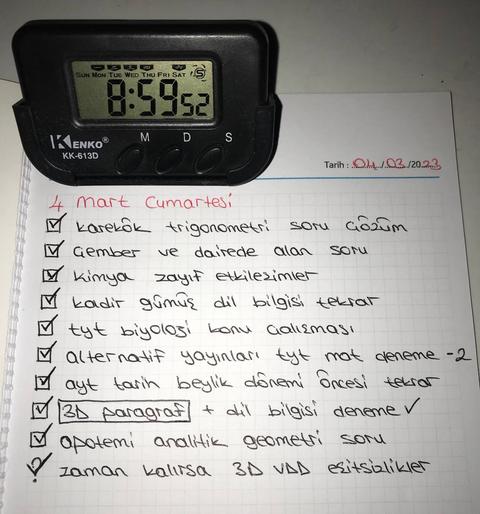 SUN MON TUE WED THU FRI SAT
8:59 52
KENKO®
KK-613D
M D S
Tarih : 04/03/2023
4 Mart Cumartesi
karekök trigonometri soru çözüm
çember ve dairede alan soru
kimya zayıf etkileşimler
kadir gümüş dil bilgisi tekrar
tyt biyoloji konu çalışması
alternatif yayınları tyt mat deneme -2
ayt tarih beylik dönemi öncesi tekrar
3D paragraf + dil bilgisi deneme ✓
apotemi analitik geometri soru
? zaman kalırsa 3D VDD eşitsizlikler